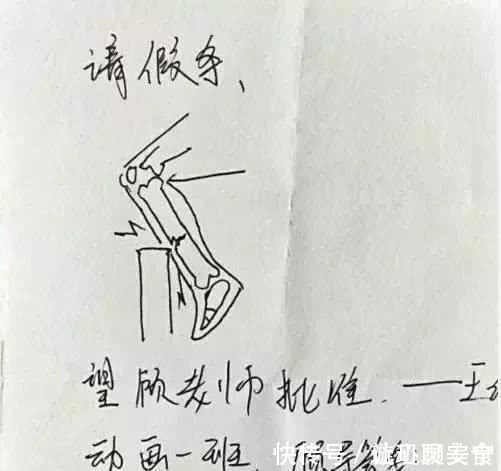 请假条、
望顾教师批准.——王
动画一班.
快传号/微机聊美食